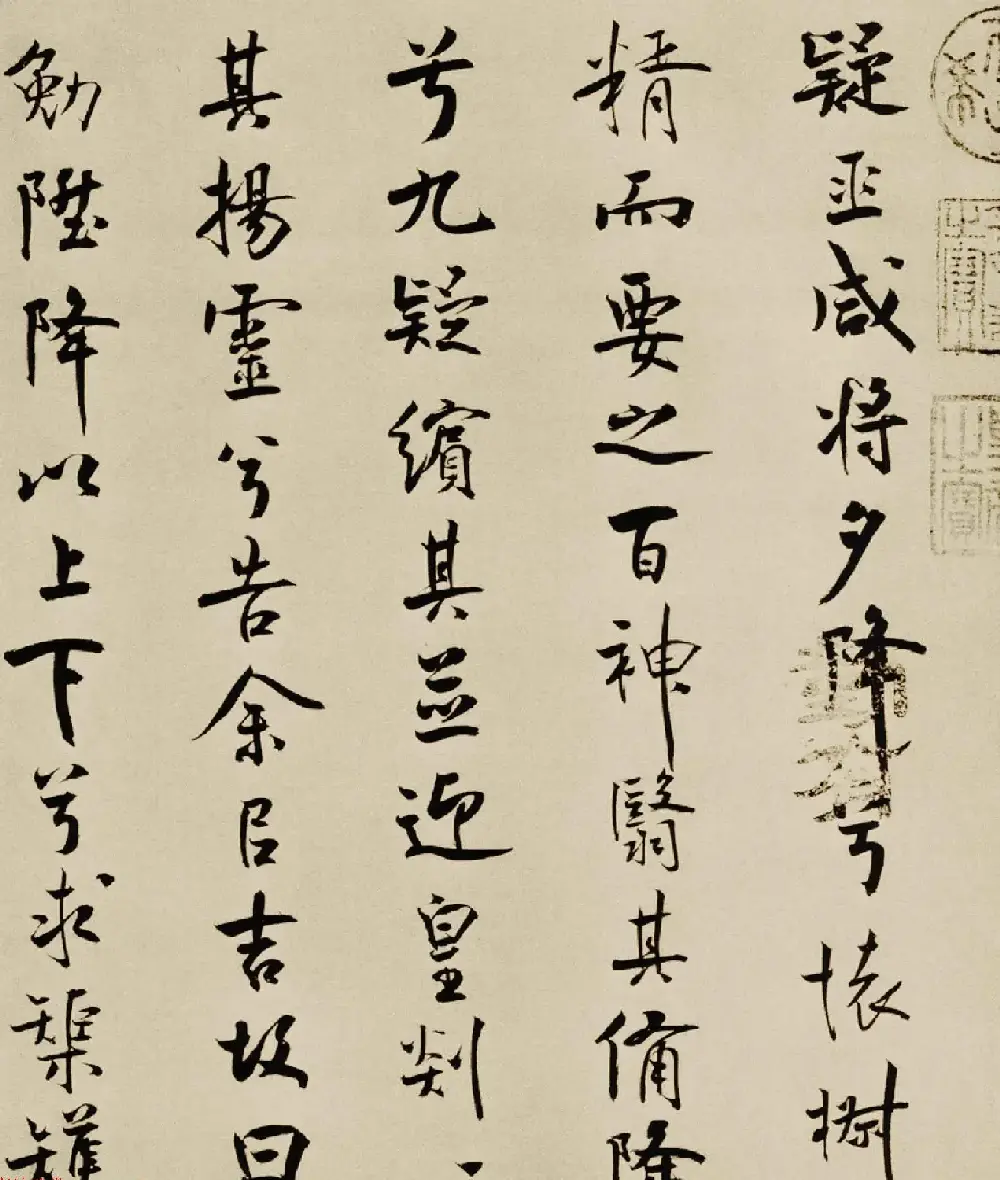 疑巫咸将夕降兮懐椒
糈而要之百神翳其備降
兮九疑繽其並迎皇剡、
其揚靈兮告余㠯吉故曰
勉陞降以上下兮求榘矱